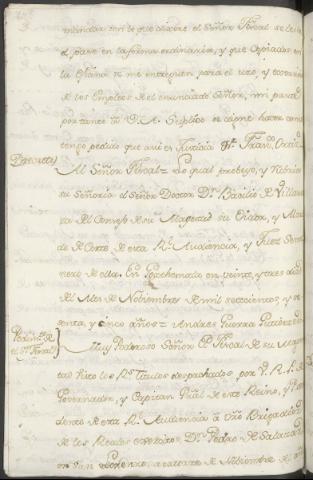 mandar con lo que dixere el Señor Fiscal se le de
el pase en la forma ordinaria, y que copiadas en
la ofizina se me entreguen para el uso, y
de los Empleos de el enunciado Señor, mi parte
por tanto = A V. A. Suplico se digne haver como
tengo pedido que assi es Justicia &c. Franco. Ortiz
Decreto} Al Señor Fiscal = Lo qual proveyo, y rubrico
su Señoria el Señor Doctor Dn. Basilio de Villarra
sa del Consejo de su Magestad su Oidor, y Alcal
de de Corte de esta Rl. Audiencia, y Juez Sema
nero de ella. En Goathemala en veinte, y tres dias
del Mes de Nobiembre de mil setecientos, y se
senta, y cinco años = Andres Guerra Gutierrez
Pedimto. de
el Sr. Fiscal} Muy Poderoso Señor = El Fiscal de su Mages
tad visto los Rs. Titulos despachados por
Governador, y Capitan Gral de este Reino, y Presi
dente de esta Rl. Audiencia a vro Brigadier
de los Reales exercitos Dn. Pedro de Salazar
en San Lorenzo, a catorce de Nobiembre de